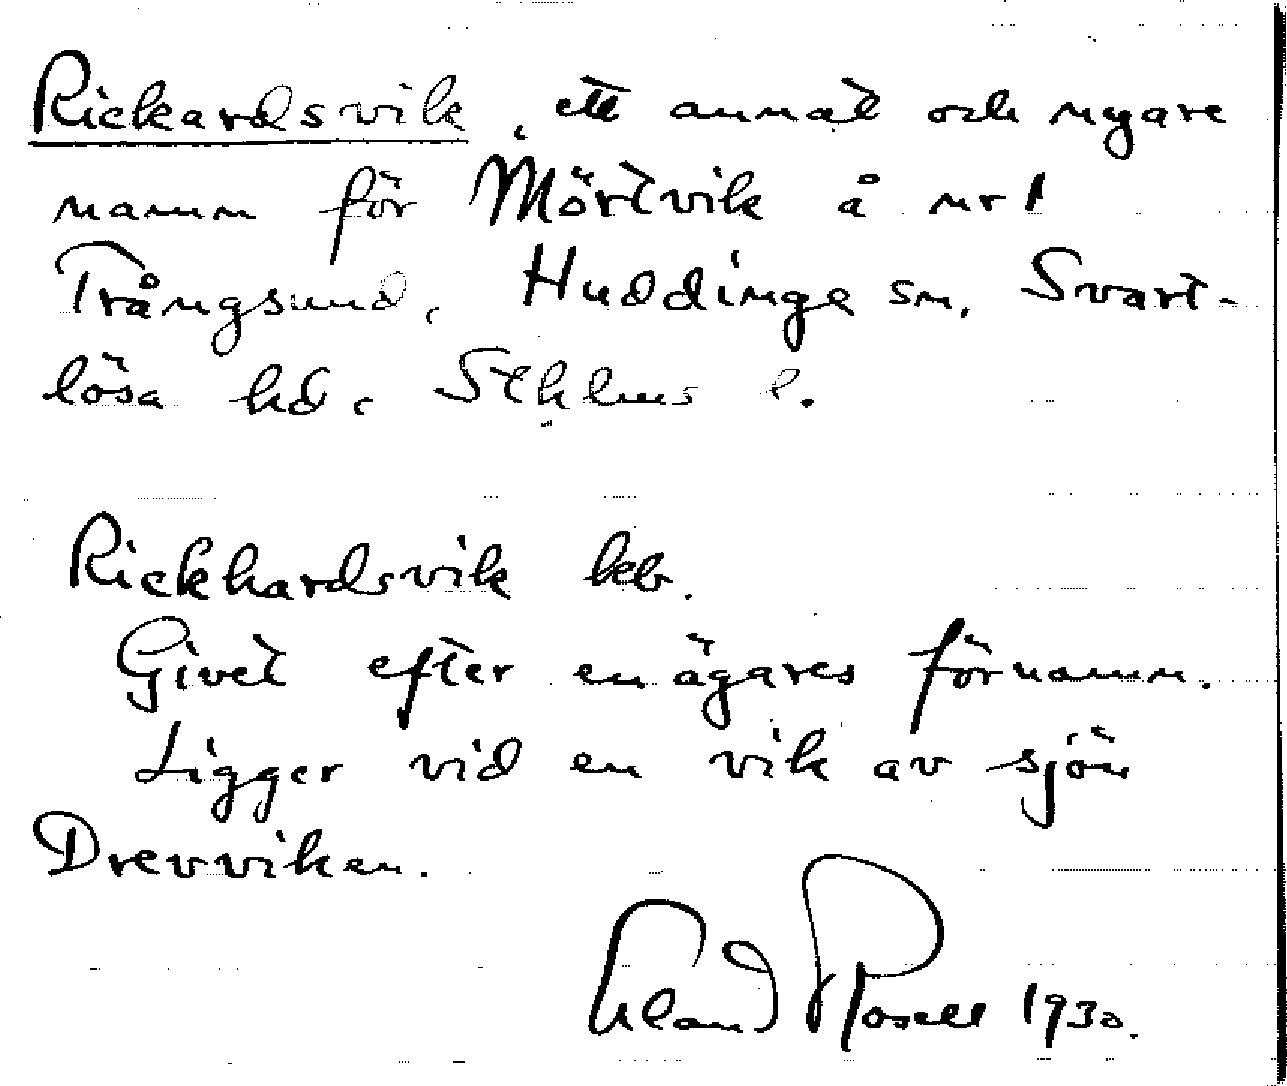 Rickardsvik, ett annat och nyare
namn för Mörtvik å nr 1
Trångsund, Huddinge sn, Svart-
lösa hd, Sthlms l.
Rickhardsvik keb.
Givet efter en ägares förnamn.
Ligger vid en vik av sjön
Drevviken.
Erland Rosell 1930.